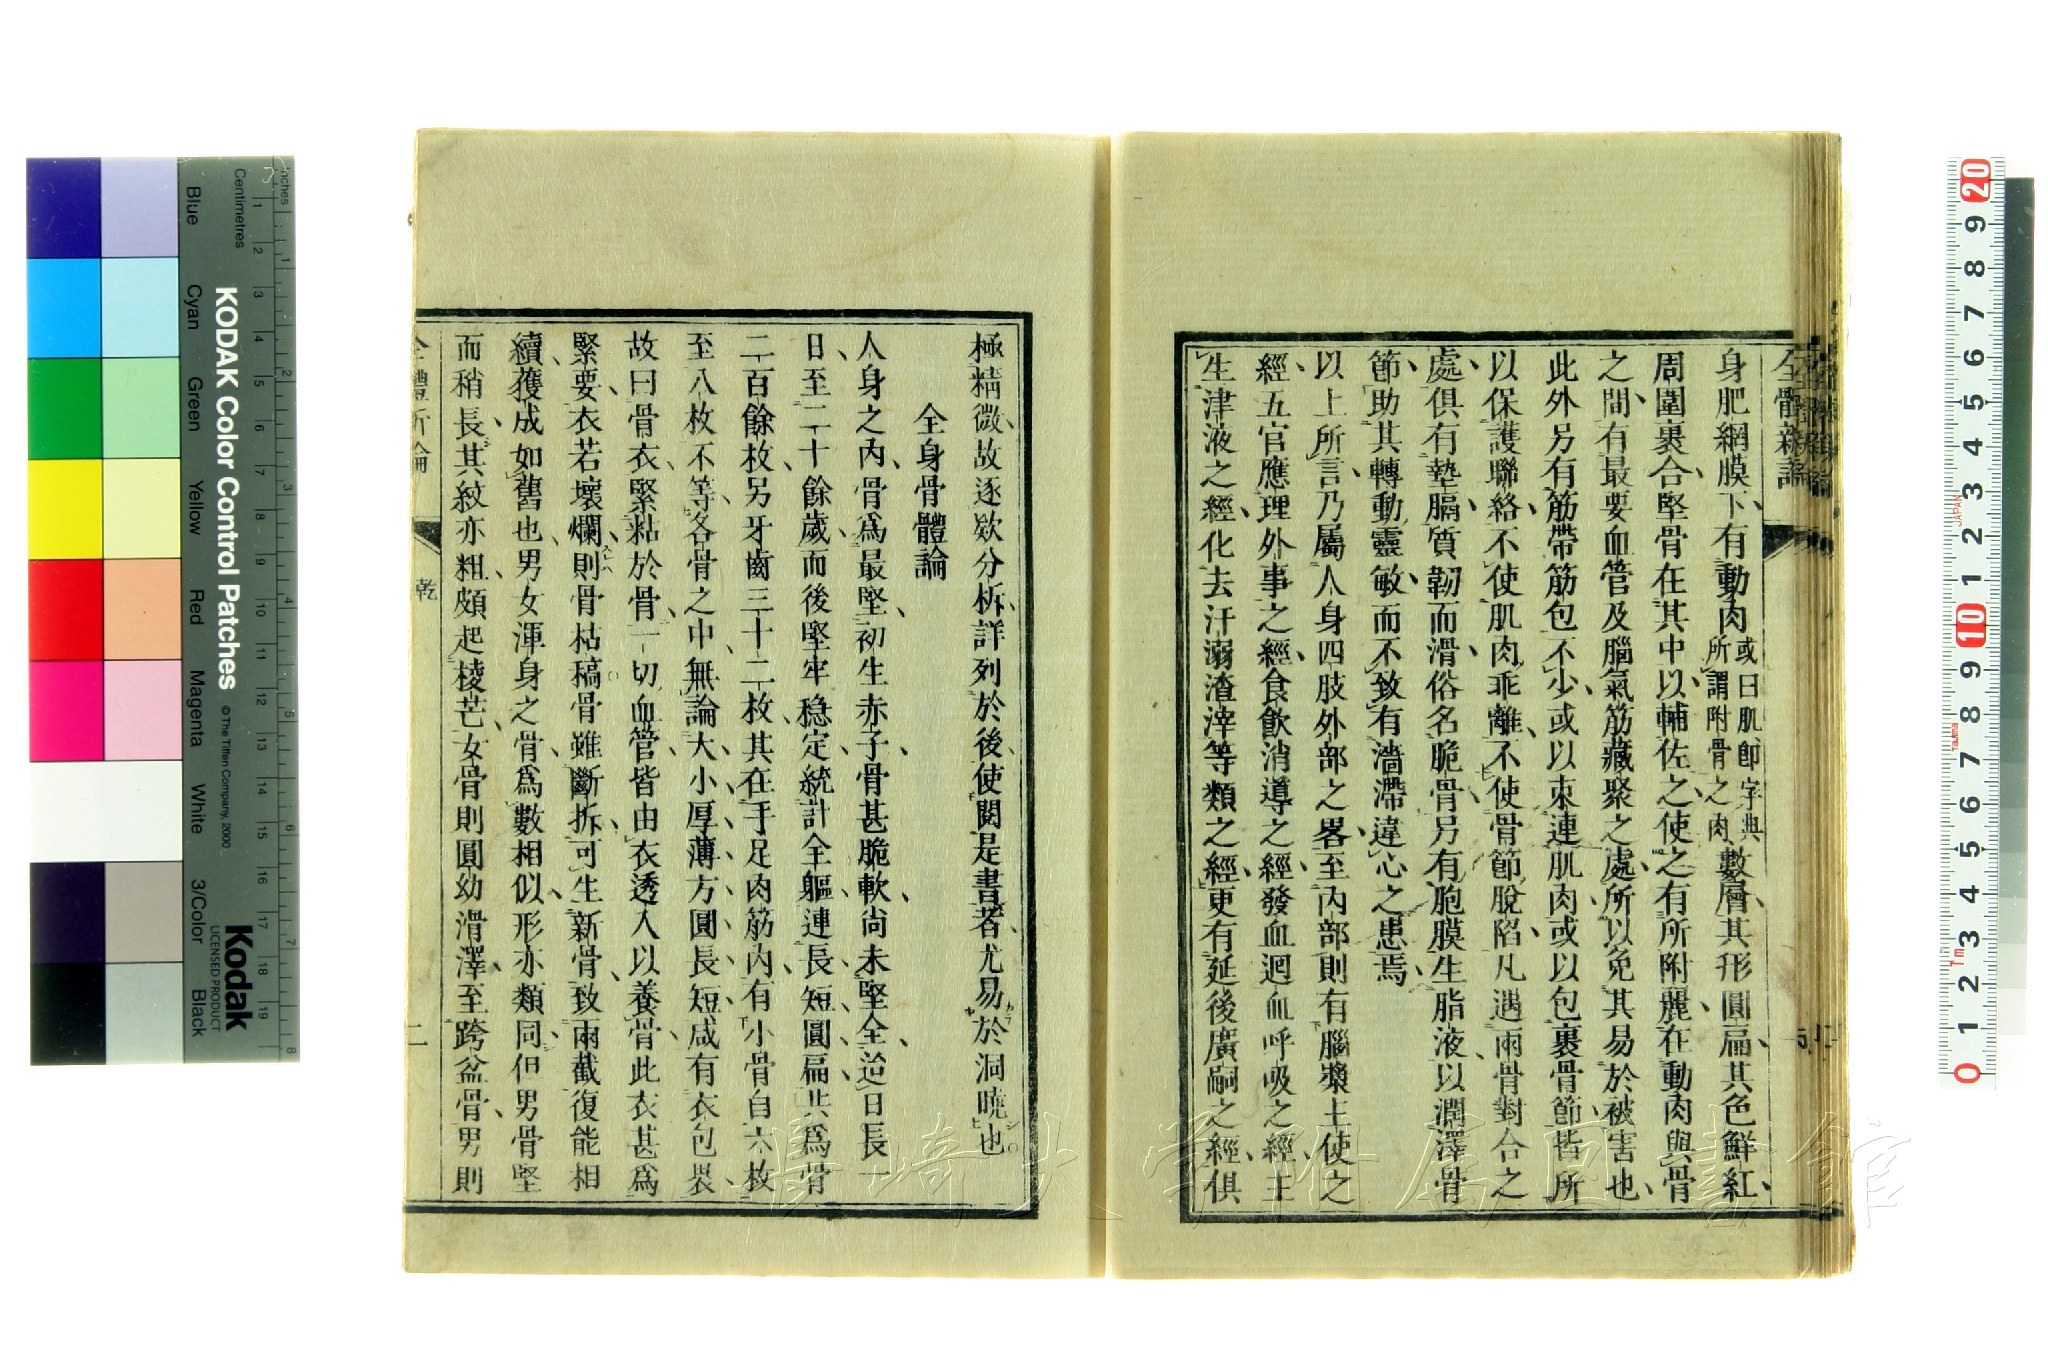 身肥網膜下有動肉或曰肌卽字典所謂附骨之肉數層其形圓扁其色鮮紅
周圍裹合堅骨在其中以輔佐之使之有所附麗在動肉與骨
之間有最要血管及腦氣筋藏聚之處所以免其易於被害也
此外另有筋帶筋包不少或以束連肌肉或以包裹骨節皆所
以保護聯絡不使肌肉乖離不使骨節脫陷凡遇兩骨對合之
處俱有墊膈質韌而滑俗名脆骨另有胞膜生脂液以潤澤骨
節助其轉動靈敏而不致有濇滯違心之患焉
以上所言乃屬人身四肢外部之畧至內部則有腦漿主使之
經五官應理外事之經食飲消導之經發血迴血呼吸之經主
生津液之經化去汗溺渣滓等類之經更有延後廣嗣之經俱
極精微故逐欵分析詳列於後使閱是書者尤易於洞曉也
全身骨體論
人身之內骨爲最堅初生赤子骨甚脆軟尙未堅全迨日長一
日至二十餘歲而後堅牢穩定統計全軀連長短圓扁共爲骨
二百餘枚另牙齒三十二枚其在手足肉筋內有小骨自六枚
至八枚不等各骨之中無論大小厚薄方圓長短咸有衣包裹
故曰骨衣緊粘於骨一切血管皆由衣透入以養骨此衣甚爲
緊要衣若壞爛則骨枯稿骨雖斷拆可生新骨致兩截復能相
續獲成如舊也男女渾身之骨爲數相似形亦類同但男骨堅
而稍長其紋亦粗頗起棱芒女骨則圓幼滑澤至跨盆骨男則
乾
二
KODAK Color Control Patches
© The Tiffen Company, 2000
Kodak
LICENSED PRODUCT
inches
Centimetres
Blue
Cyan
Green
Yellow
Red
Magenta
White
3/Color
Black
JAPAN
Tajima